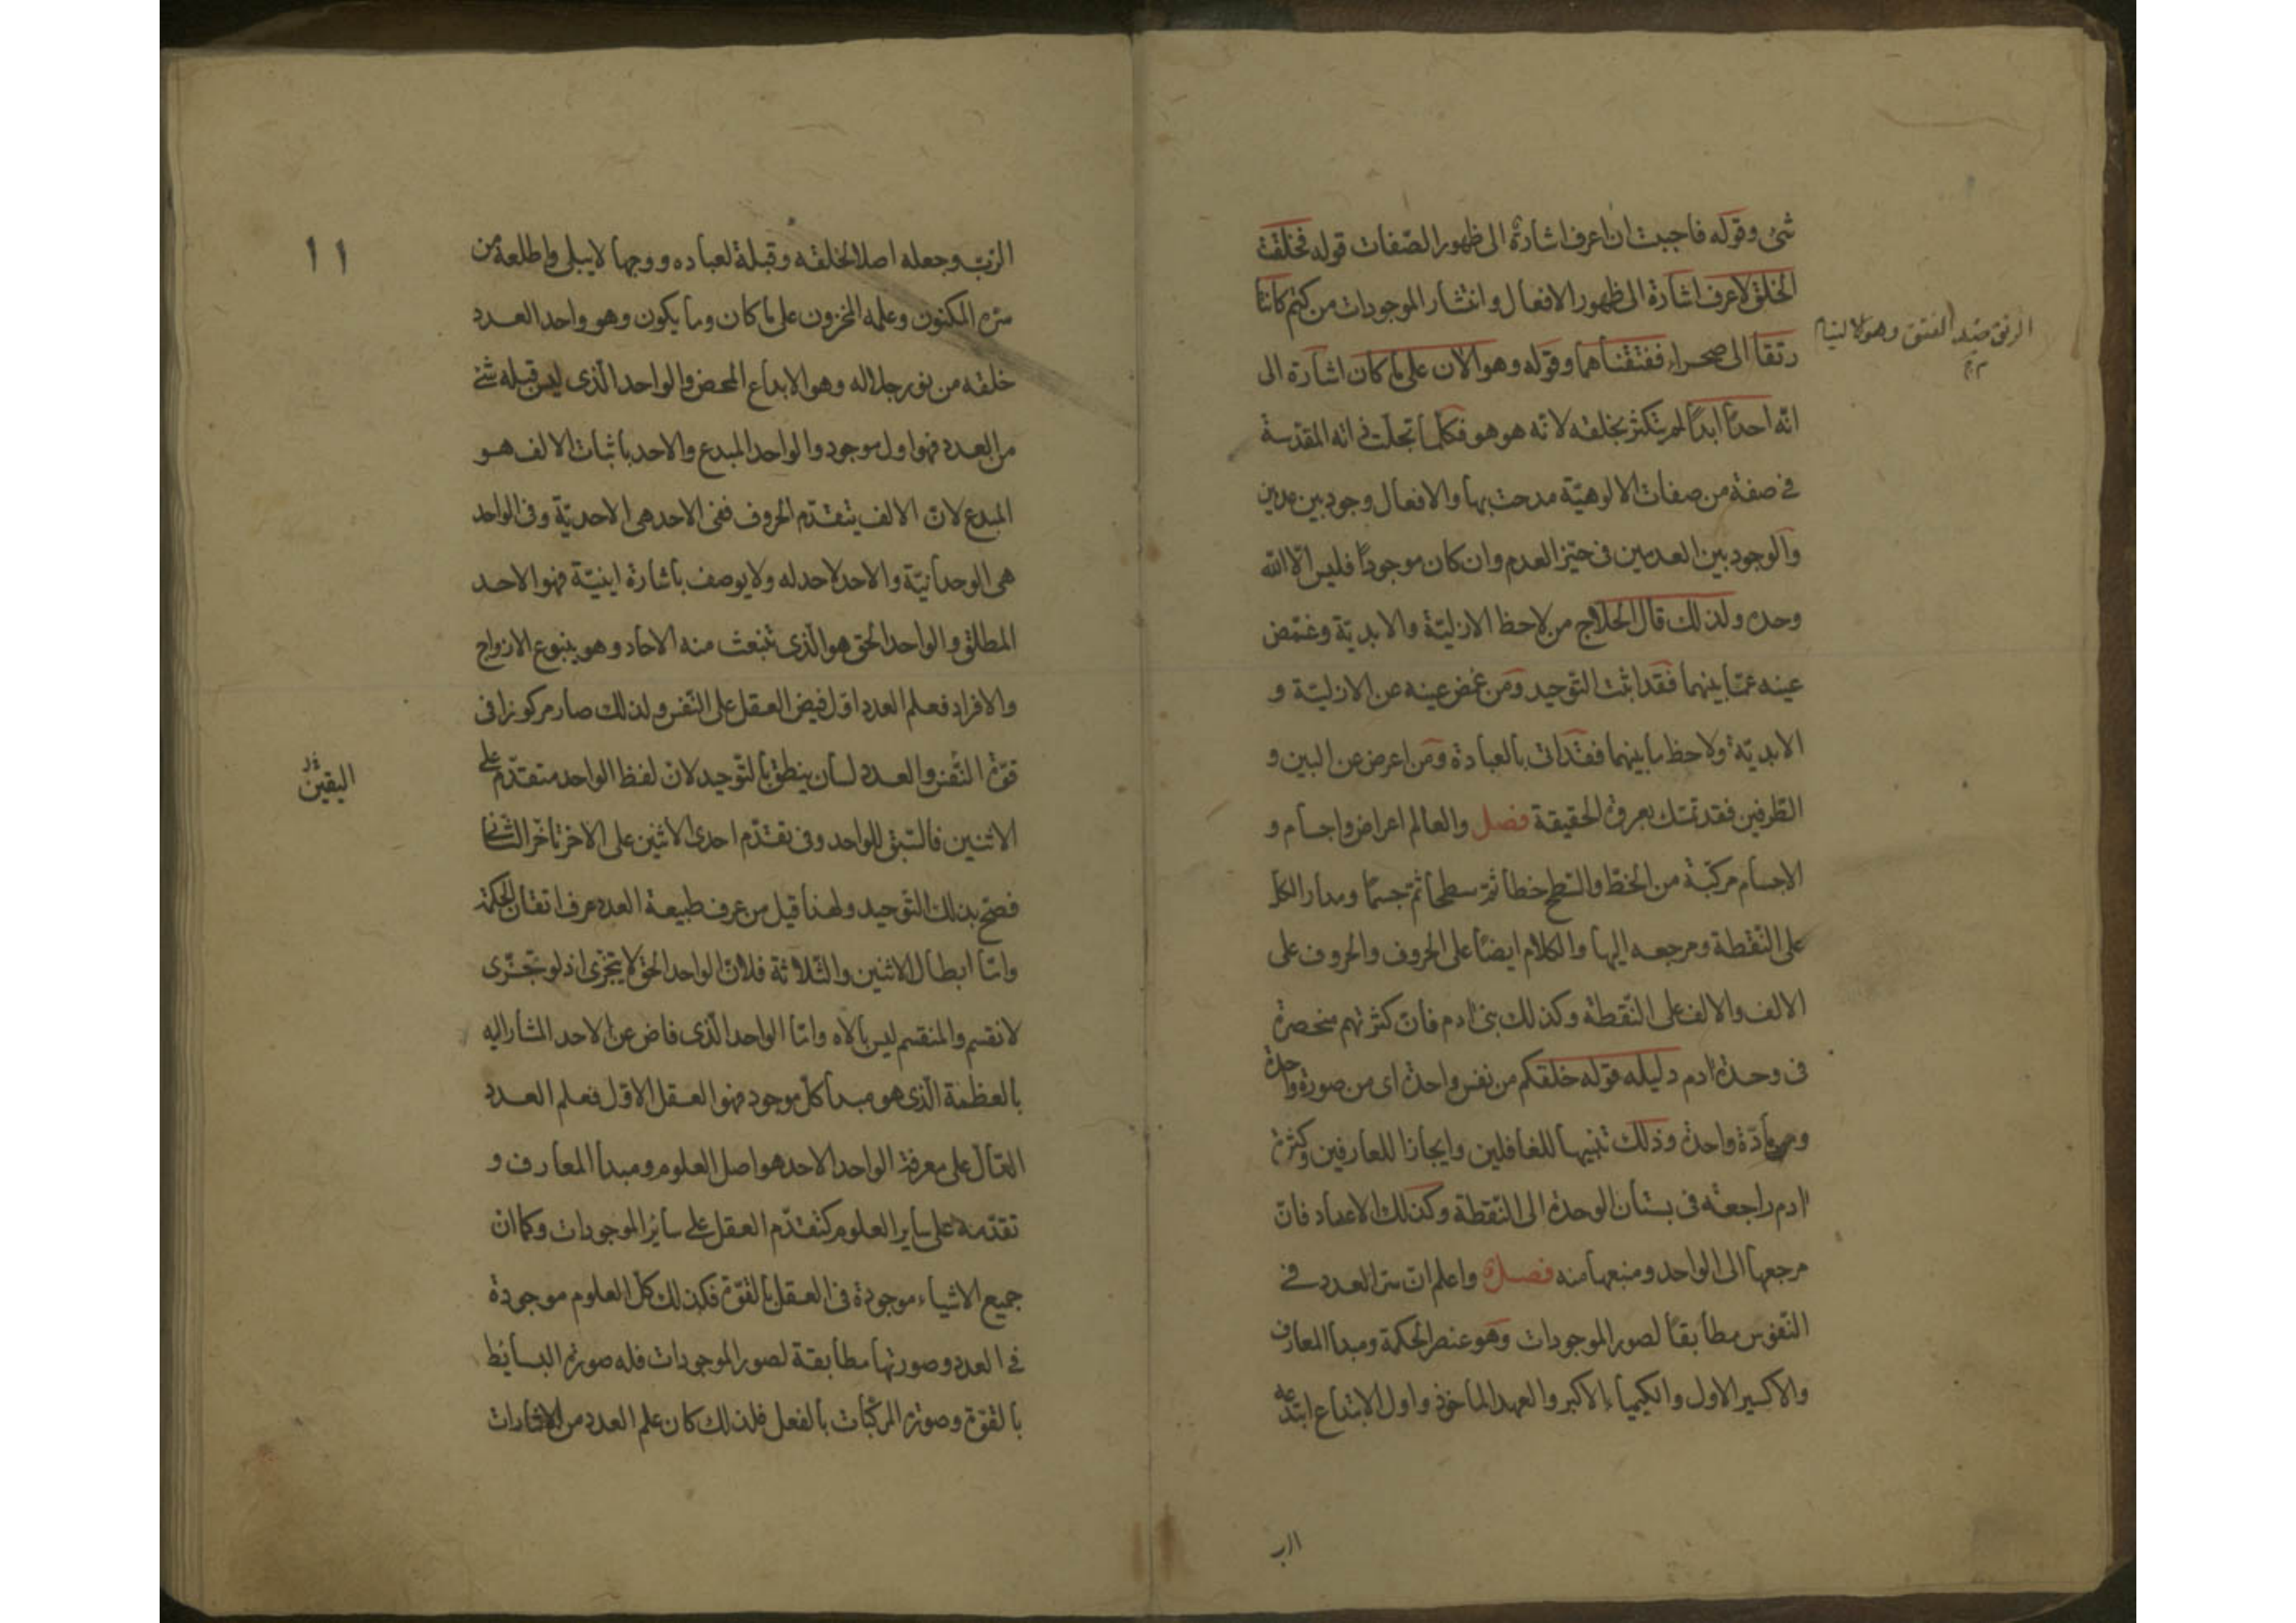 شئ وقوله فاحببت ان اعرف اشارة الى ظهور الصفات قوله فخلقت
الخلق لاعرف اشارة الى ظهور الافعال وانتشار الموجودات من كتم كانتا
رتقا الى صحراء ففتقناهما وقوله وهو الان على ما كان اشارة الى
الرتق ضد الفتق وهو الالتيام
انه احدا ابدا لم يتكثر بخلقه لانه هو هو فكلما تجلت ذاته المقدسة
فى صفة من صفات الالوهية مدحت بها والافعال وجود بين عدمين
والوجود بين العدمين فى حيز العدم وان كان موجودا فليس الا الله
وحده ولذلك قال الحلاج من لاحظ الازلية والابدية وغمض
عينه عما بينهما فقد اثبت التوحيد ومن غمض عينه عن الازلية و
الابدية ولاحظ ما بينهما فقد اتى بالعبادة ومن اعرض عن البين و
الطرفين فقد تمسك بعروة الحقيقة فصل والعالم اعراض واجسام و
الاجسام مركبة من الخط والسطح خطا ثم سطحا ثم جسما ومدار الكل
على النقطة ومرجعه اليها والكلام ايضا على الحروف والحروف على
الالف والالف على النقطة وكذلك بنى ادم فان كثرتهم منحصرة
فى وحدة ادم دليله قوله خلقكم من نفس واحدة اى من صورة واحدة
ومادة واحدة وذلك تنبيها للغافلين وايجازا للعارفين وكثرة
ادم راجعة فى بستان الوحدة الى النقطة وكذلك الاعداد فان
مرجعها الى الواحد ومنبعها منه فصل واعلم ان سر العدد فى
النفوس مطابقا لصور الموجودات وهو عنصر الحكمة ومبدا المعارف
والاكسير الاول والكيمياء الاكبر والعهد الماخوذ واول الابتداع ابتدعه
الرب
١١
الرب وجعله اصلا لخلقه وقبلة لعباده ووجها لا يبلى واطلعه من
سره المكنون وعلمه المخزون على ما كان وما يكون وهو واحد العدد
خلقه من نور جلاله وهو الابداع المحض والواحد الذى ليس قبله شئ
من العدد فهو اول موجود والواحد المبدع والاحد باثبات الالف هو
المبدع لان الالف يتقدم الحروف ففى الاحد هى الاحدية وفى الواحد
هى الوحدانية والاحد لاحد له ولا يوصف باشارة اينية فهو الاحد
المطلق والواحد الحق هو الذى تنبعث منه الاحاد وهو ينبوع الازواج
والافراد فعلم العدد اول فيض العقل على النفس ولذلك صار مركوزا فى
قوة النفس والعدد لسان ينطق بالتوحيد لان لفظ الواحد متقدم على
اليقين
الاثنين فالسبق للواحد وفى تقدم احدى الاثنين على الاخر تاخر الثانى
فصح بذلك التوحيد ولهذا قيل من عرف طبيعة العدد عرف اتقان الحكمة
واما ابطال الاثنين والثلاثة فلان الواحد الحق لا يتجزى اذ لو تجزى
لانقسم والمنقسم ليس بالاه واما الواحد الذى فاض عن الاحد المشار اليه
بالعظمة الذى هو مبدا كل موجود فهو العقل الاول فعلم العدد
الدال على معرفة الواحد الاحد هو اصل العلوم ومبدا المعارف و
تقدمه على ساير العلوم كتقدم العقل على سائر الموجودات وكما ان
جميع الاشياء موجودة فى العقل بالقوة فكذلك كل العلوم موجودة
فى العدد وصورتها مطابقة لصور الموجودات فله صورة البسائط
بالقوة وصورة المركبات بالفعل فلذلك كان علم العدد من الاشارات